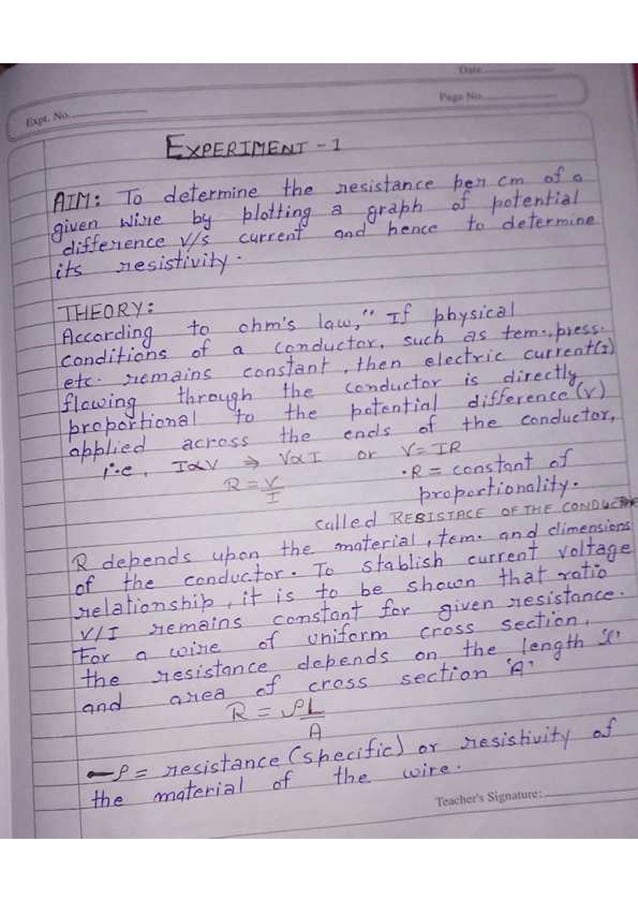 Date
Expt. No.
Page No.
EXPERIMENT - 1
AIM: To determine the resistance per cm of a
given wire by plotting a graph of potential
difference V/s current and hence to determine
its resistivity.
THEORY:
According to ohm's law," If physical
conditions of a conductor, such as tem., press.
etc. remains constant, then electric current(I)
flowing through the conductor is directly
proportional to the potential difference (V)
applied across the ends of the conductor,
i.e, I∝V ⇒ V∝I or V=IR
R = V/I
.R = constant of
proportionality.
called RESISTACE OF THE CONDUCTOR
R depends upon the material, tem. and dimensions
of the conductor. To stablish current voltage
relationship, it is to be shown that ratio
V/I remains constant for given resistance.
For a wire of uniform cross section,
the resistance depends on the length 'l'
and area of cross section 'A'
R = ρL/A
ρ = resistance (specific) or resistivity of
the material of the wire.
Teacher's Signature: